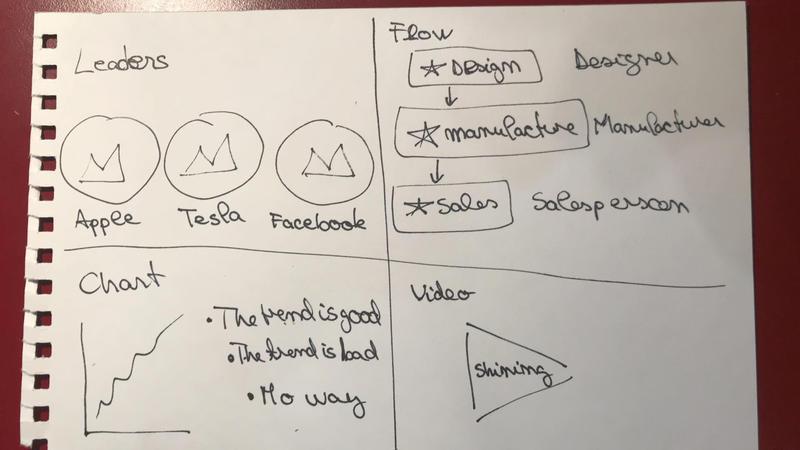 Leaders
Apple Tesla Facebook
Flow
Design Designer
manufacture Manufacturer
Sales Salesperson
Chart
• The trend is good
• The trend is bad
• No way
Video
Shining